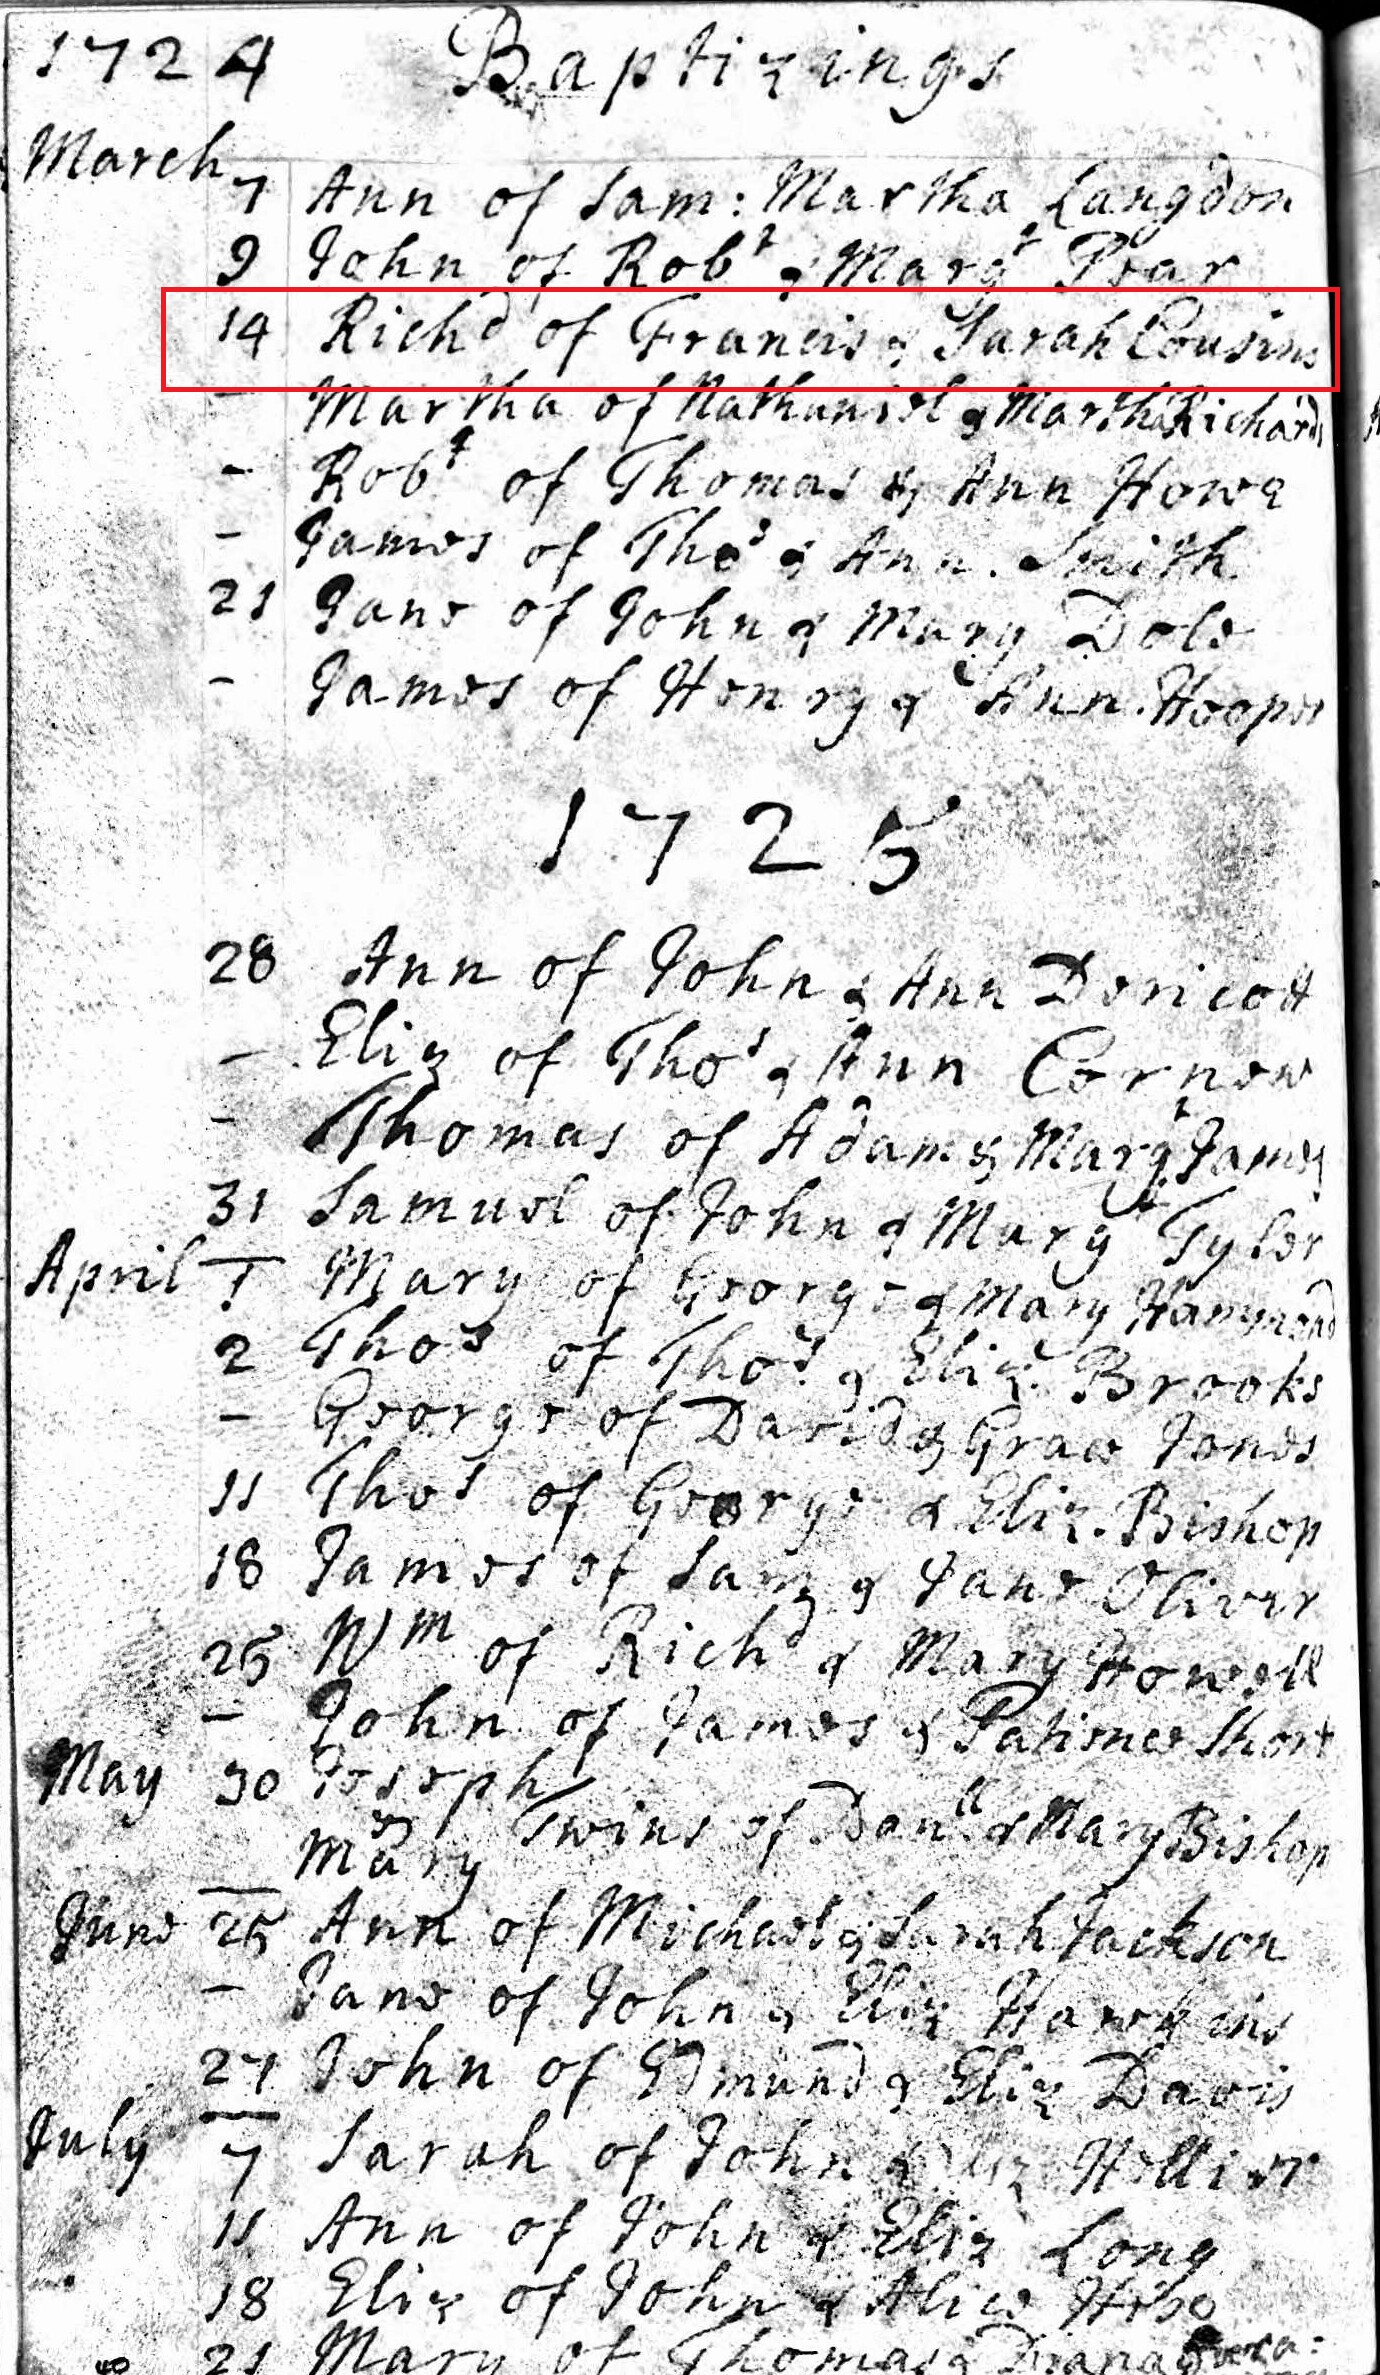 1724 Baptizings
March 7 Ann of Sam: Martha Langdon
9 John of Robt & Margt Pear
14 Richd of Francis & Sarah Cousins
- Martha of Nathaniel & Martha Richards
- Robt of Thomas & Ann Howe
- James of Thos & Ann Smith
21 Jane of John & Mary Dole
- James of Henry & Ann Hooper
1725
28 Ann of John & Ann Doricott
- Eliz of Thos & Ann Cornew
- Thomas of Adam & Margt James
31 Samuel of John & Margt Tyler
April 1 Mary of George & Mary Hammond
2 Thos of Thos & Eliz. Brooks
- George of David & Grace Jones
11 Thos of George & Eliz. Bishop
18 James of Sam & Jane Oliver
25 Wm of Richd & Mary Howell
- John of James & Patience Short
May 30 Joseph
& Twins of Danll & Mary Bishop
Mary
June 25 Ann of Michael & Sarah Jackson
- Jane of John & Eliz Hawkins
27 John of Edmund & Eliz Davis
July 7 Sarah of John & Eliz Hellier
11 Ann of John & Eliz Long
18 Eliz of John & Alice
21 Mary of Thomas & Diana